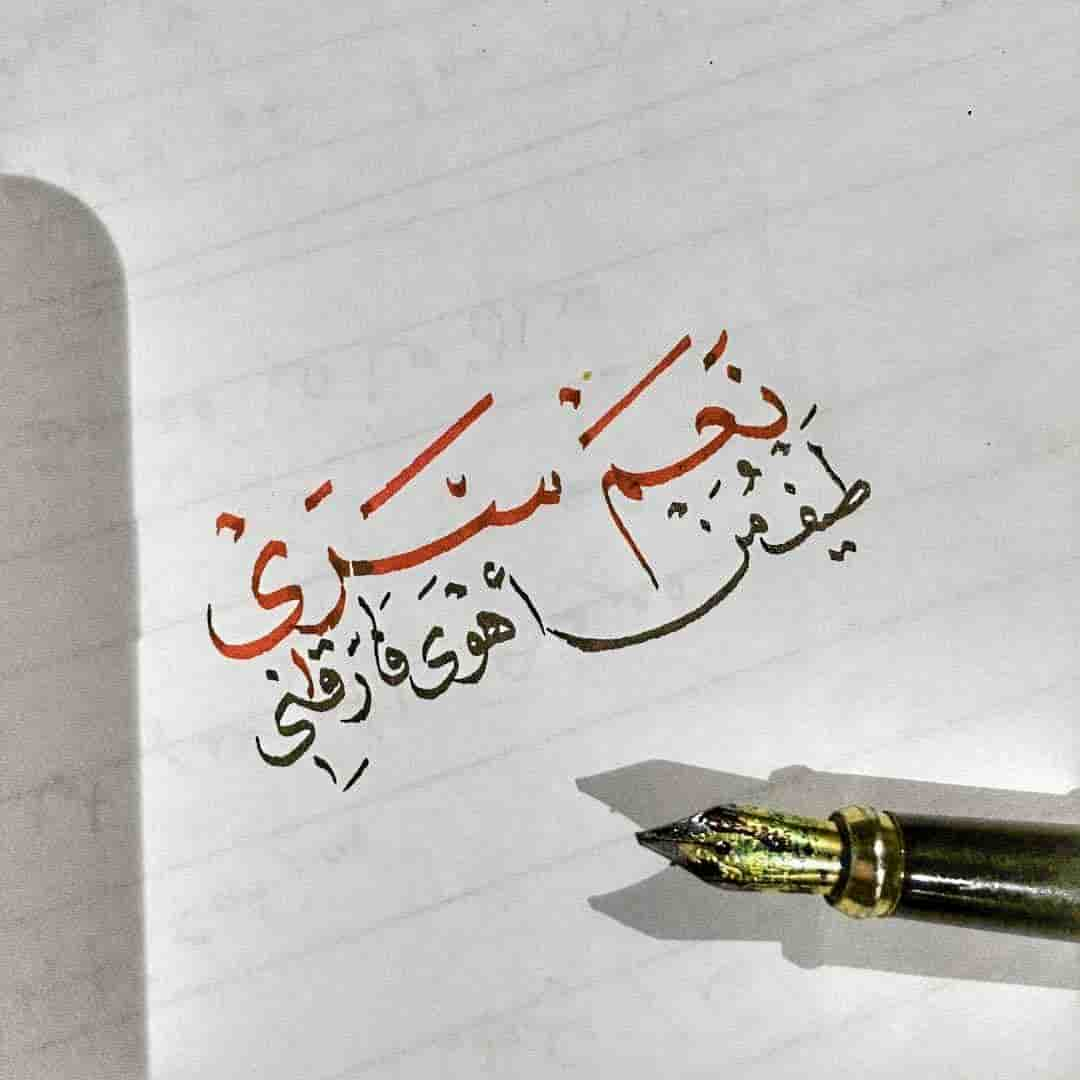 نَعَمْ سَرَىْ
طَيْفُ مَنْ أَهْوَى فَارَقَنِى